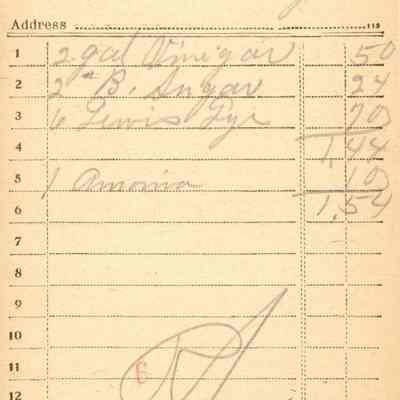 Address 115
1 2 gal Vinegar 50
2 2# B. Sugar 24
3 6 Lewis Lye 70
4 1,44
5 1 Amonia 10
6 1,54
7
8
9
10
11 6
12